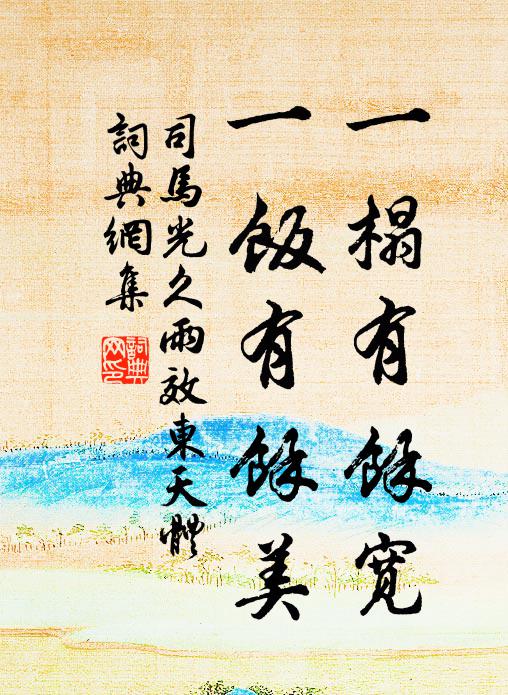 一榻有餘寬
一飯有餘美
司馬光久雨效東天體
詞典網集
詞典網印